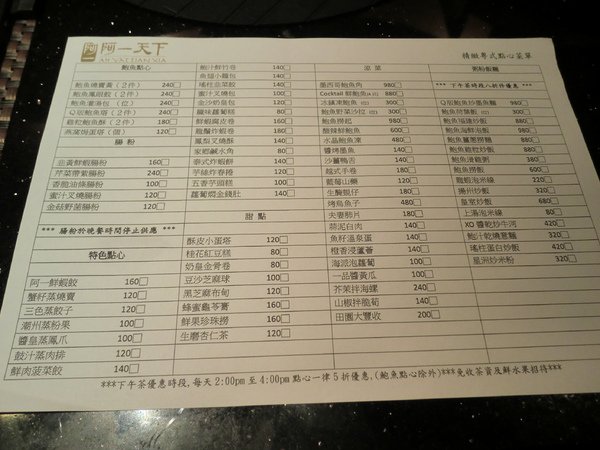 阿一
阿一天下
AH YAT TIAN XIA
精緻粵式點心菜單
鮑魚點心
鮑魚燒賣（２件） 240
鮑魚鳳眼餃（２件） 240
鮑魚灌湯包（位） 240
Q版鮑魚塔（２件） 240
雞粒鮑魚酥（２件） 180
燕窩焗蛋塔（個） 120
腸粉
韭黃鮮蝦腸粉 160
芹菜帶紫腸粉 240
香脆油條腸粉 100
蜜汁叉燒腸粉 120
金菇野菌腸粉 120
*** 腸粉於晚餐時間停止供應 ***
特色點心
阿一鮮蝦餃 160
蟹籽蒸燒賣 120
三色蒸餃子 120
潮州蒸粉果 100
醬皇蒸鳳爪 100
鼓汁蒸肉排 120
鮮肉菠菜餃 140
鮑汁鮮竹卷 140
魚翅小籠包 140
瑤柱韭菜餃 140
蜜汁叉燒包 100
金沙奶皇包 120
臘味蘿蔔糕 80
鮮蝦腐皮卷 160
龍鬚炸蝦卷 180
鳳梨叉燒酥 140
家鄉鹹水角 80
泰式炸蝦餅 140
芋絲炸春捲 120
五香芋頭糕 100
蘿蔔燜金錢肚 140
甜點
酥皮小蛋塔 120
桂花紅豆糕 80
奶皇金骨卷 80
豆沙芝麻球 100
黑芝麻布甸 120
蜂蜜龜苓膏 160
鮮果珍珠撈 160
生磨杏仁茶 120
涼菜
墨西哥鮑魚角 980
Cocktail 鮮鮑魚 880
冰鎮凍鮑魚 300
鮑魚野菜沙拉 380
鮑魚撈起 980
醋辣鮮鮑魚 600
水晶鮑魚凍 480
醬烤墨魚 140
沙薑鴨舌 140
越式手卷 180
藍莓山藥 120
生騎蜆仔 220
烤烏魚子 480
夫妻肺片 180
蒜泥白肉 140
魚籽溫泉蛋 140
橙香浸蘆薈 140
海派泡蘿蔔 100
一品醬黃瓜 100
芥茉拌海螺 240
山椒拌脆筍 140
田園大豐收 200
粥粉飯麵
*** 下午茶時段八折優惠 ***
Q版鮑魚炒墨魚麵 980
鮑魚荷葉飯 300
鮑魚福建炒飯 880
鮑魚海鮮泡飯 980
鮑魚薑蔥撈麵 580
鮑魚雞粒炒飯 580
鮑魚滑雞粥 380
鮑魚撈飯 680
龍蝦泡米線 580
揚州炒飯 320
皇室炒飯 680
上湯泡米線 80
XO 醬乾炒牛河 420
鮑汁乾燒意麵 320
瑤柱蛋白炒飯 320
星洲炒米粉 320
***下午茶優惠時段,每天 2:00pm 至 4:00pm 點心一律 5 折優惠,(鮑魚點心除外)***免收茶資及鮮水果招待***